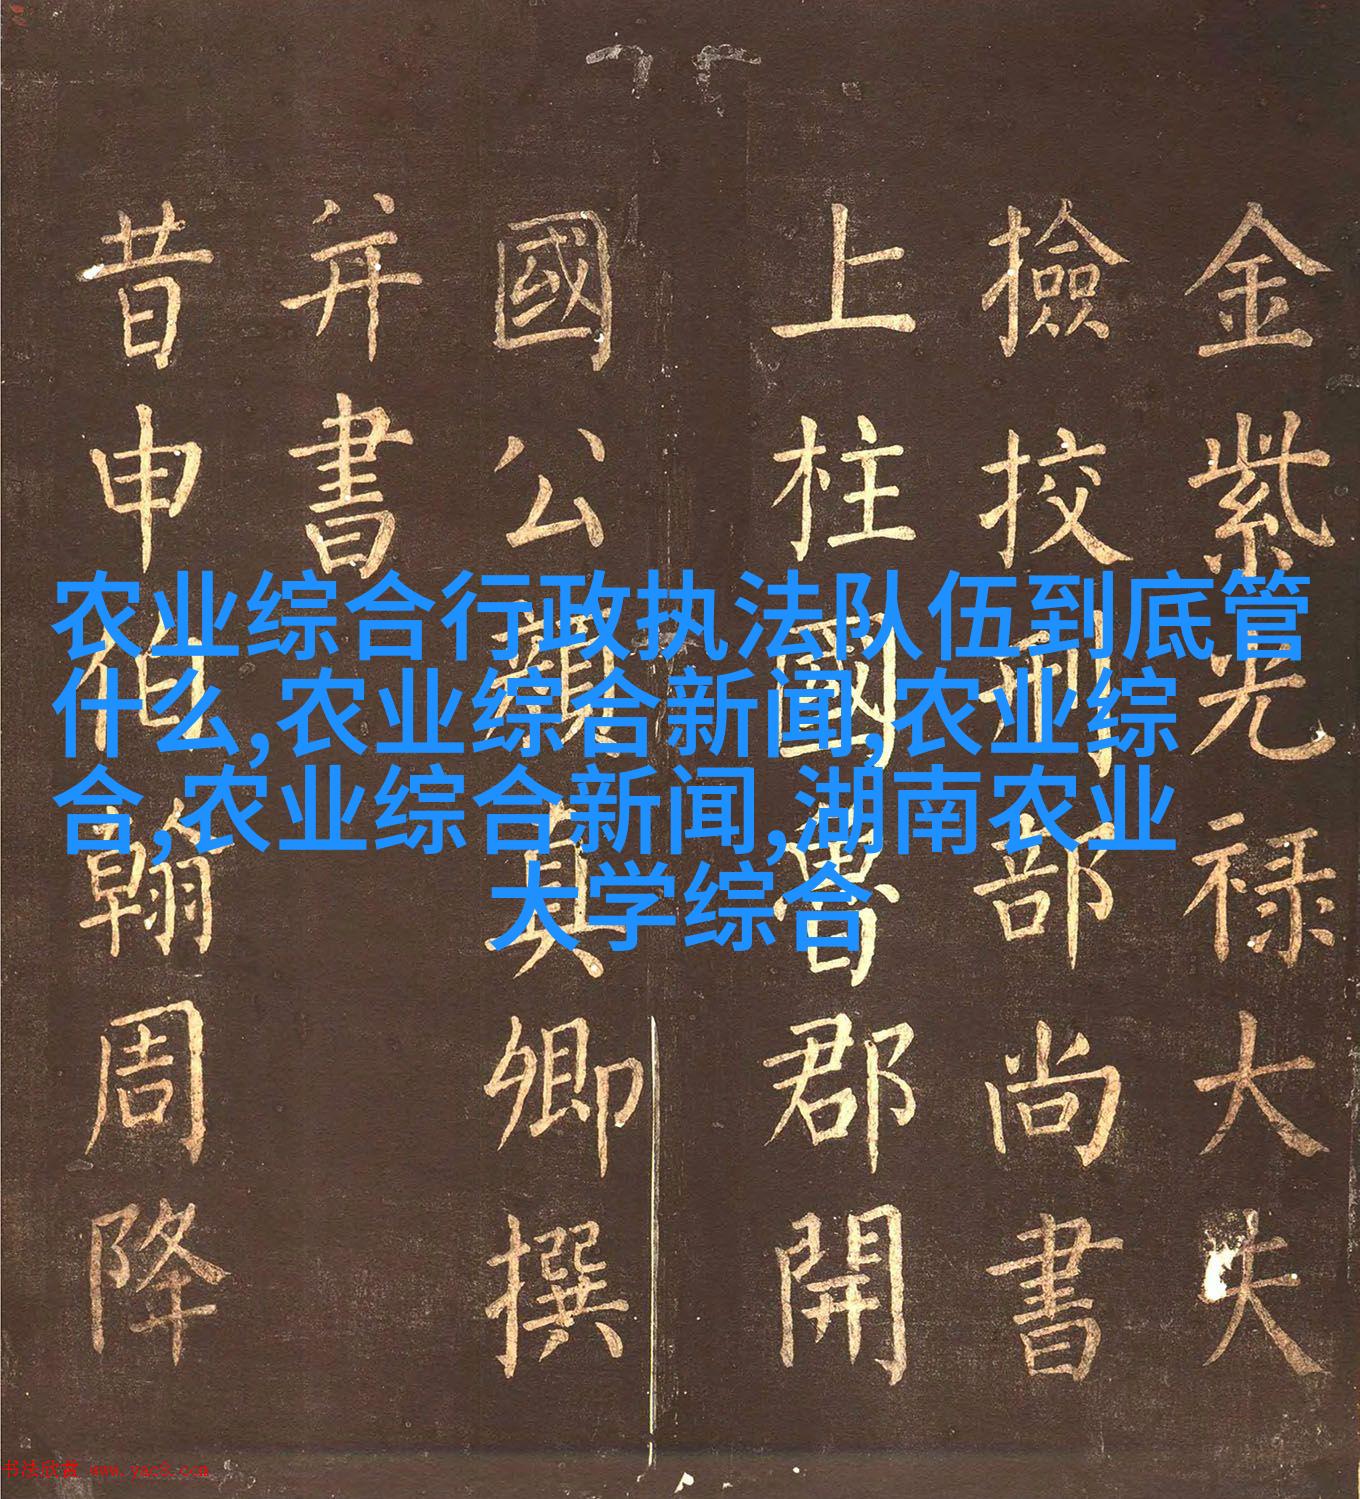 金紫光禄大夫
撿挍刑部尚書
上柱國魯郡開
國公顔真卿撰
并書
昔申伯翰周降
农业综合行政执法队伍到底管
什么,农业综合新闻,农业综
合,农业综合新闻,湖南农业
大学综合
书法欣赏 www.yac8.com